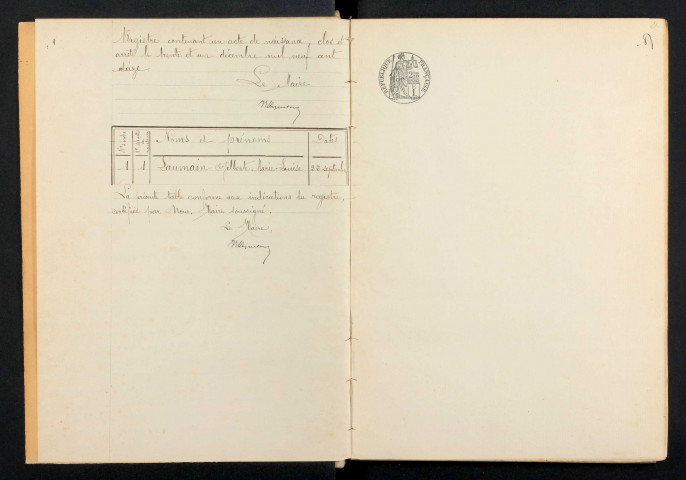 Registre contenant un acte de naissance, clos et
arrêté le trente et un décembre mil neuf cent
onze
Le Maire
Noms et prénoms Dates
1 1 Laumain Gilbert Marie-Louise 23 septembre
La présente table conforme aux indications du registre,
certifiée par Nous, Maire soussigné.
Le Maire,
RÉPUBLIQUE FRANÇAISE